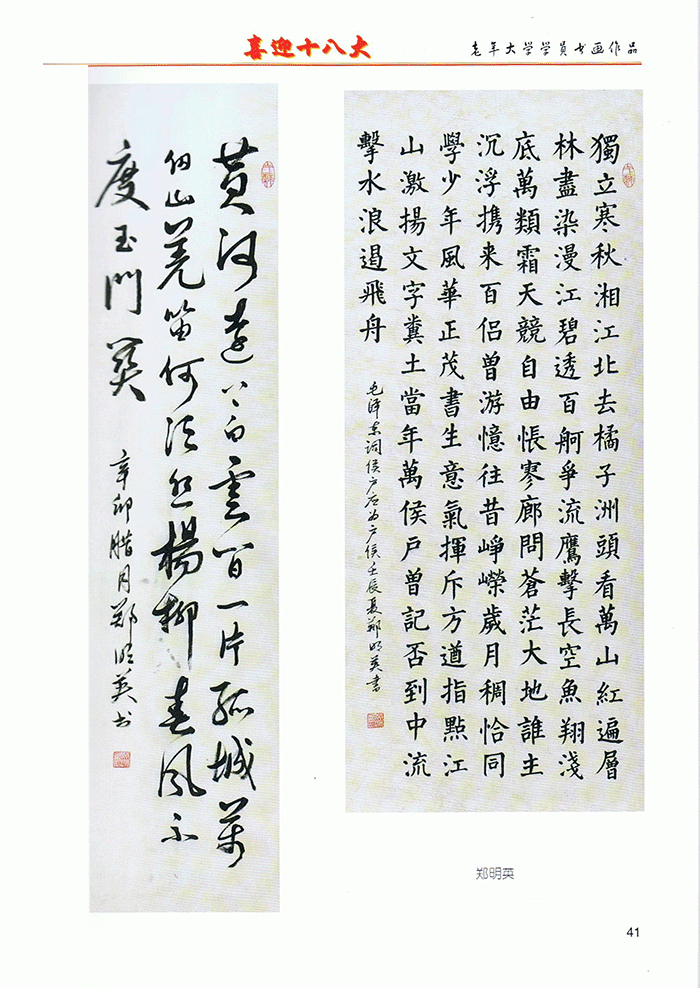 喜迎十八大
老年大学学员书画作品
獨立寒秋湘江北去橘子洲頭看萬山紅遍層
林盡染漫江碧透百舸爭流鷹擊長空魚翔淺
底萬類霜天競自由悵寥廊問蒼茫大地誰主
沉浮携来百侣曾游憶往昔崢嶸歲月稠恰同
學少年風華正茂書生意氣揮斥方遒指點江
山激揚文字糞土當年萬侯户曾記否到中流
擊水浪遏飛舟
毛泽东词侯户应为户侯壬辰夏郑明英書
黄河遠上白雲间一片孤城萬
仞山羌笛何须怨楊柳春風不
度玉門关
辛卯腊月郑明英书
郑明英
41